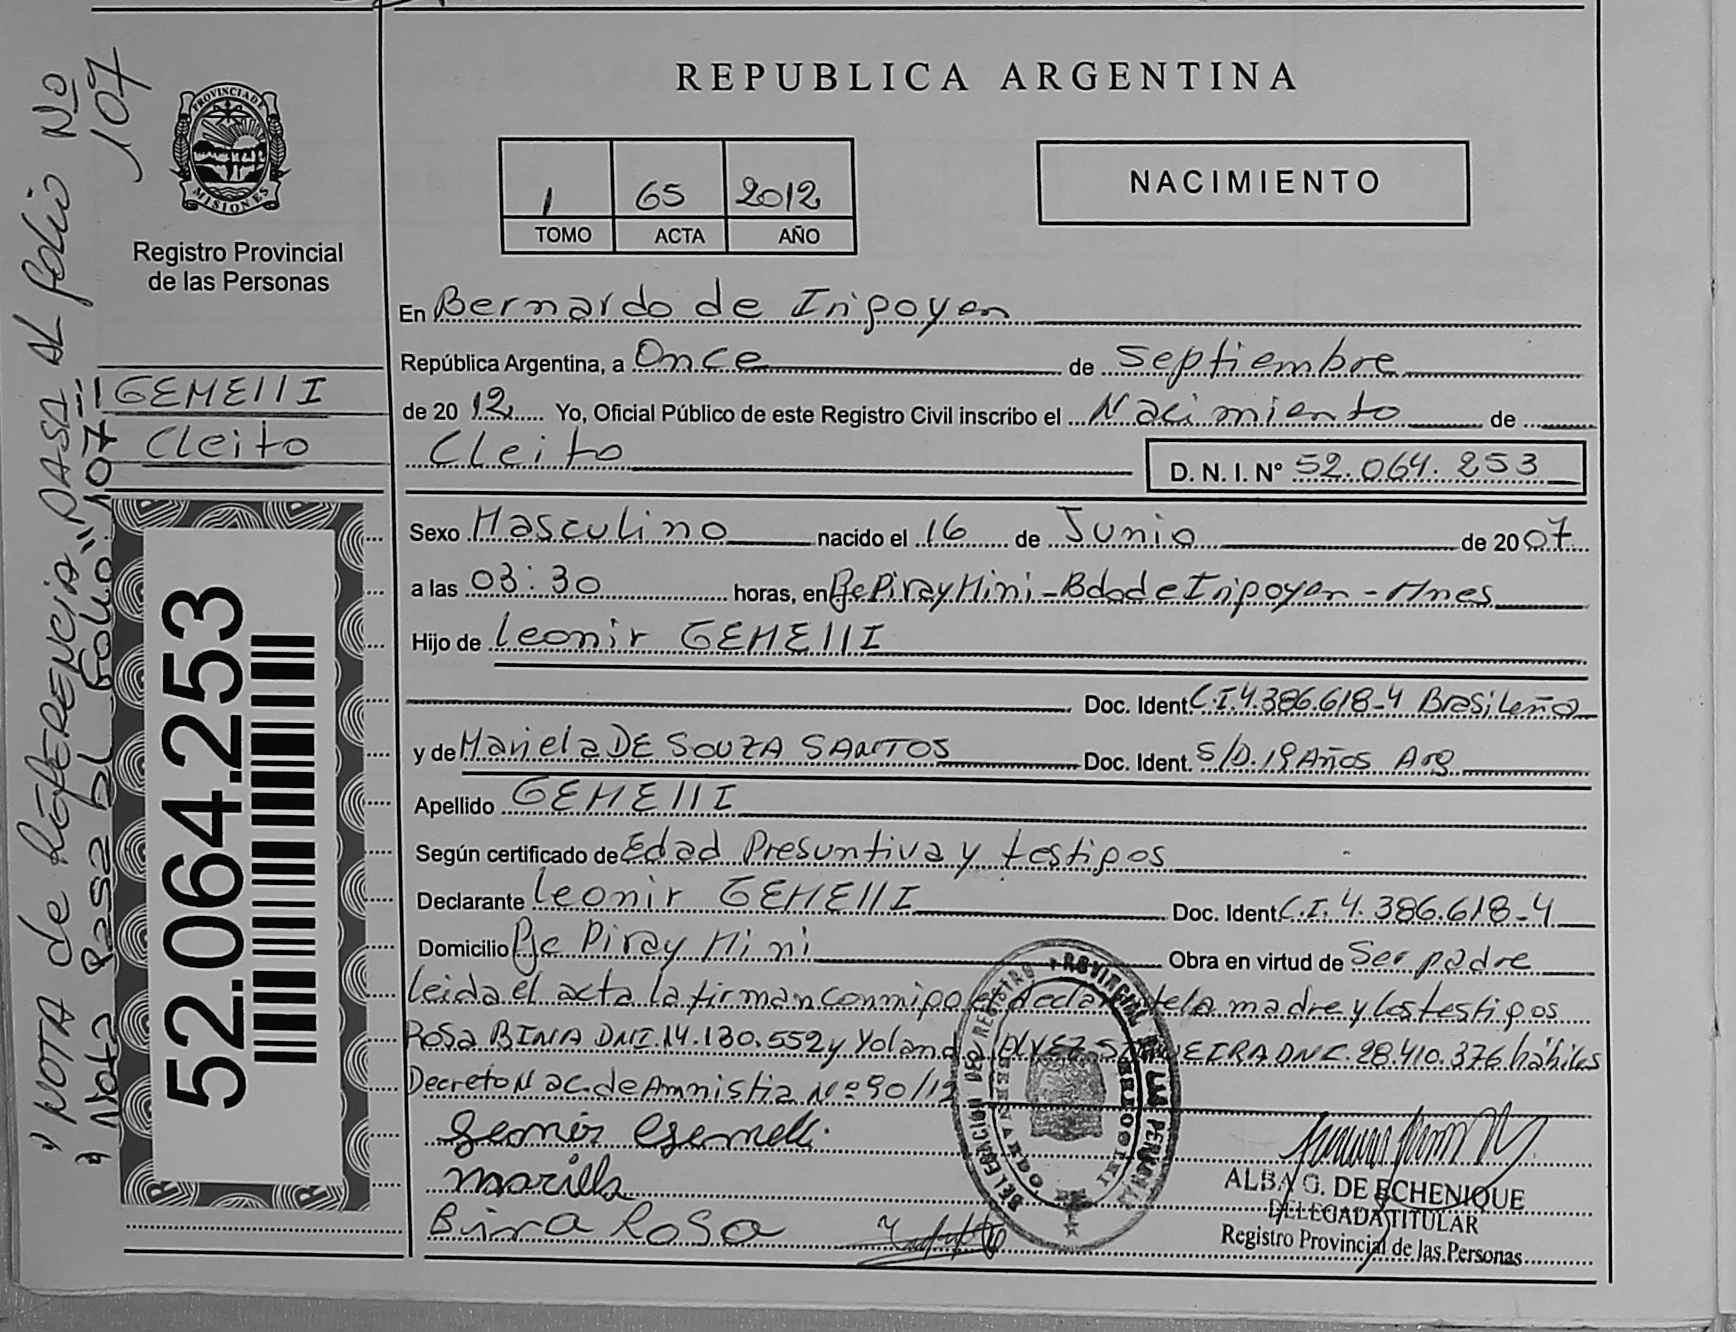 REPUBLICA ARGENTINA
PROVINCIA DE
MISIONES
Registro Provincial
de las Personas
1 65 2012
TOMO ACTA AÑO
NACIMIENTO
En Bernardo de Irigoyen
República Argentina, a Once de Septiembre
de 2012 Yo, Oficial Público de este Registro Civil inscribo el Nacimiento de
Cleito D. N. I. Nº 52.064.253
GEMEllI
Cleito
Sexo Masculino nacido el 16 de Junio de 2007
a las 03:30 horas, en Pje Piray Mini - Bdo de Irigoyen - Mnes
Hijo de Leonir GEMEllI
Doc. Ident C.I. 4.386.618-4 Brasileña
y de Mariela DE SOUZA SANTOS Doc. Ident. S/D. 19 Años Arg
Apellido GEMEllI
Según certificado de Edad Presuntiva y testigos
Declarante Leonir GEMEllI Doc. Ident C.I. 4.386.618-4
Domicilio Pje Piray Mini Obra en virtud de Ser padre
leida el acta la firman conmigo el la madre y los testigos
Rosa BINA DNI.14.130.552 y DNI.28.410.376 hábiles
Decreto Nac. de Amnistia Nº 90/12
Leonir Gemelli
Bina Rosa
ALBA G. DE ECHENIQUE
DELEGADA TITULAR
Registro Provincial de las Personas
52.064.253
"NOTA de REFERENCIA PASA AL folio Nº 107
" Nota Pasa al folio "107"